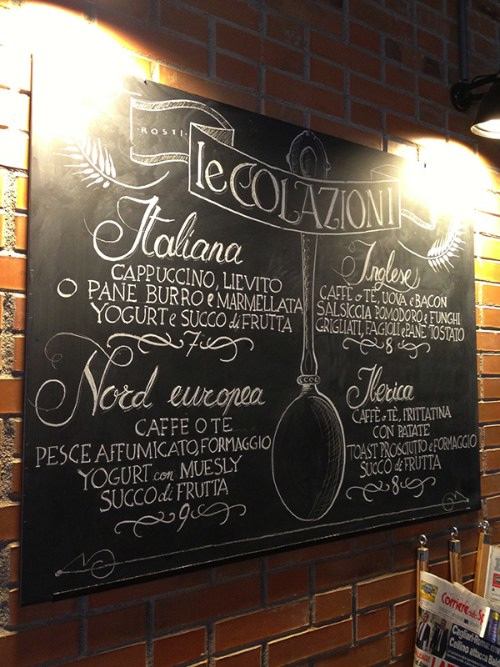 ROSTI
le COLAZIONI
Italiana
CAPPUCCINO, LIEVITO
O PANE BURRO e MARMELLATA
YOGURT e SUCCO di FRUTTA
7
Inglese
CAFFE o TÈ, UOVA e BACON
SALSICCIA POMODORO e FUNGHI
GRIGLIATI, FAGIOLI e PANE TOSTATO
8
Nord europea
CAFFE O TE
PESCE AFFUMICATO, FORMAGGIO
YOGURT con MUESLY
SUCCO di FRUTTA
9
Iberica
CAFFÈ o TÈ, FRITTATINA
CON PATATE
TOAST PROSCIUTTO e FORMAGGIO
SUCCO di FRUTTA
8
Corriere
Cagliari
Cellino attacca